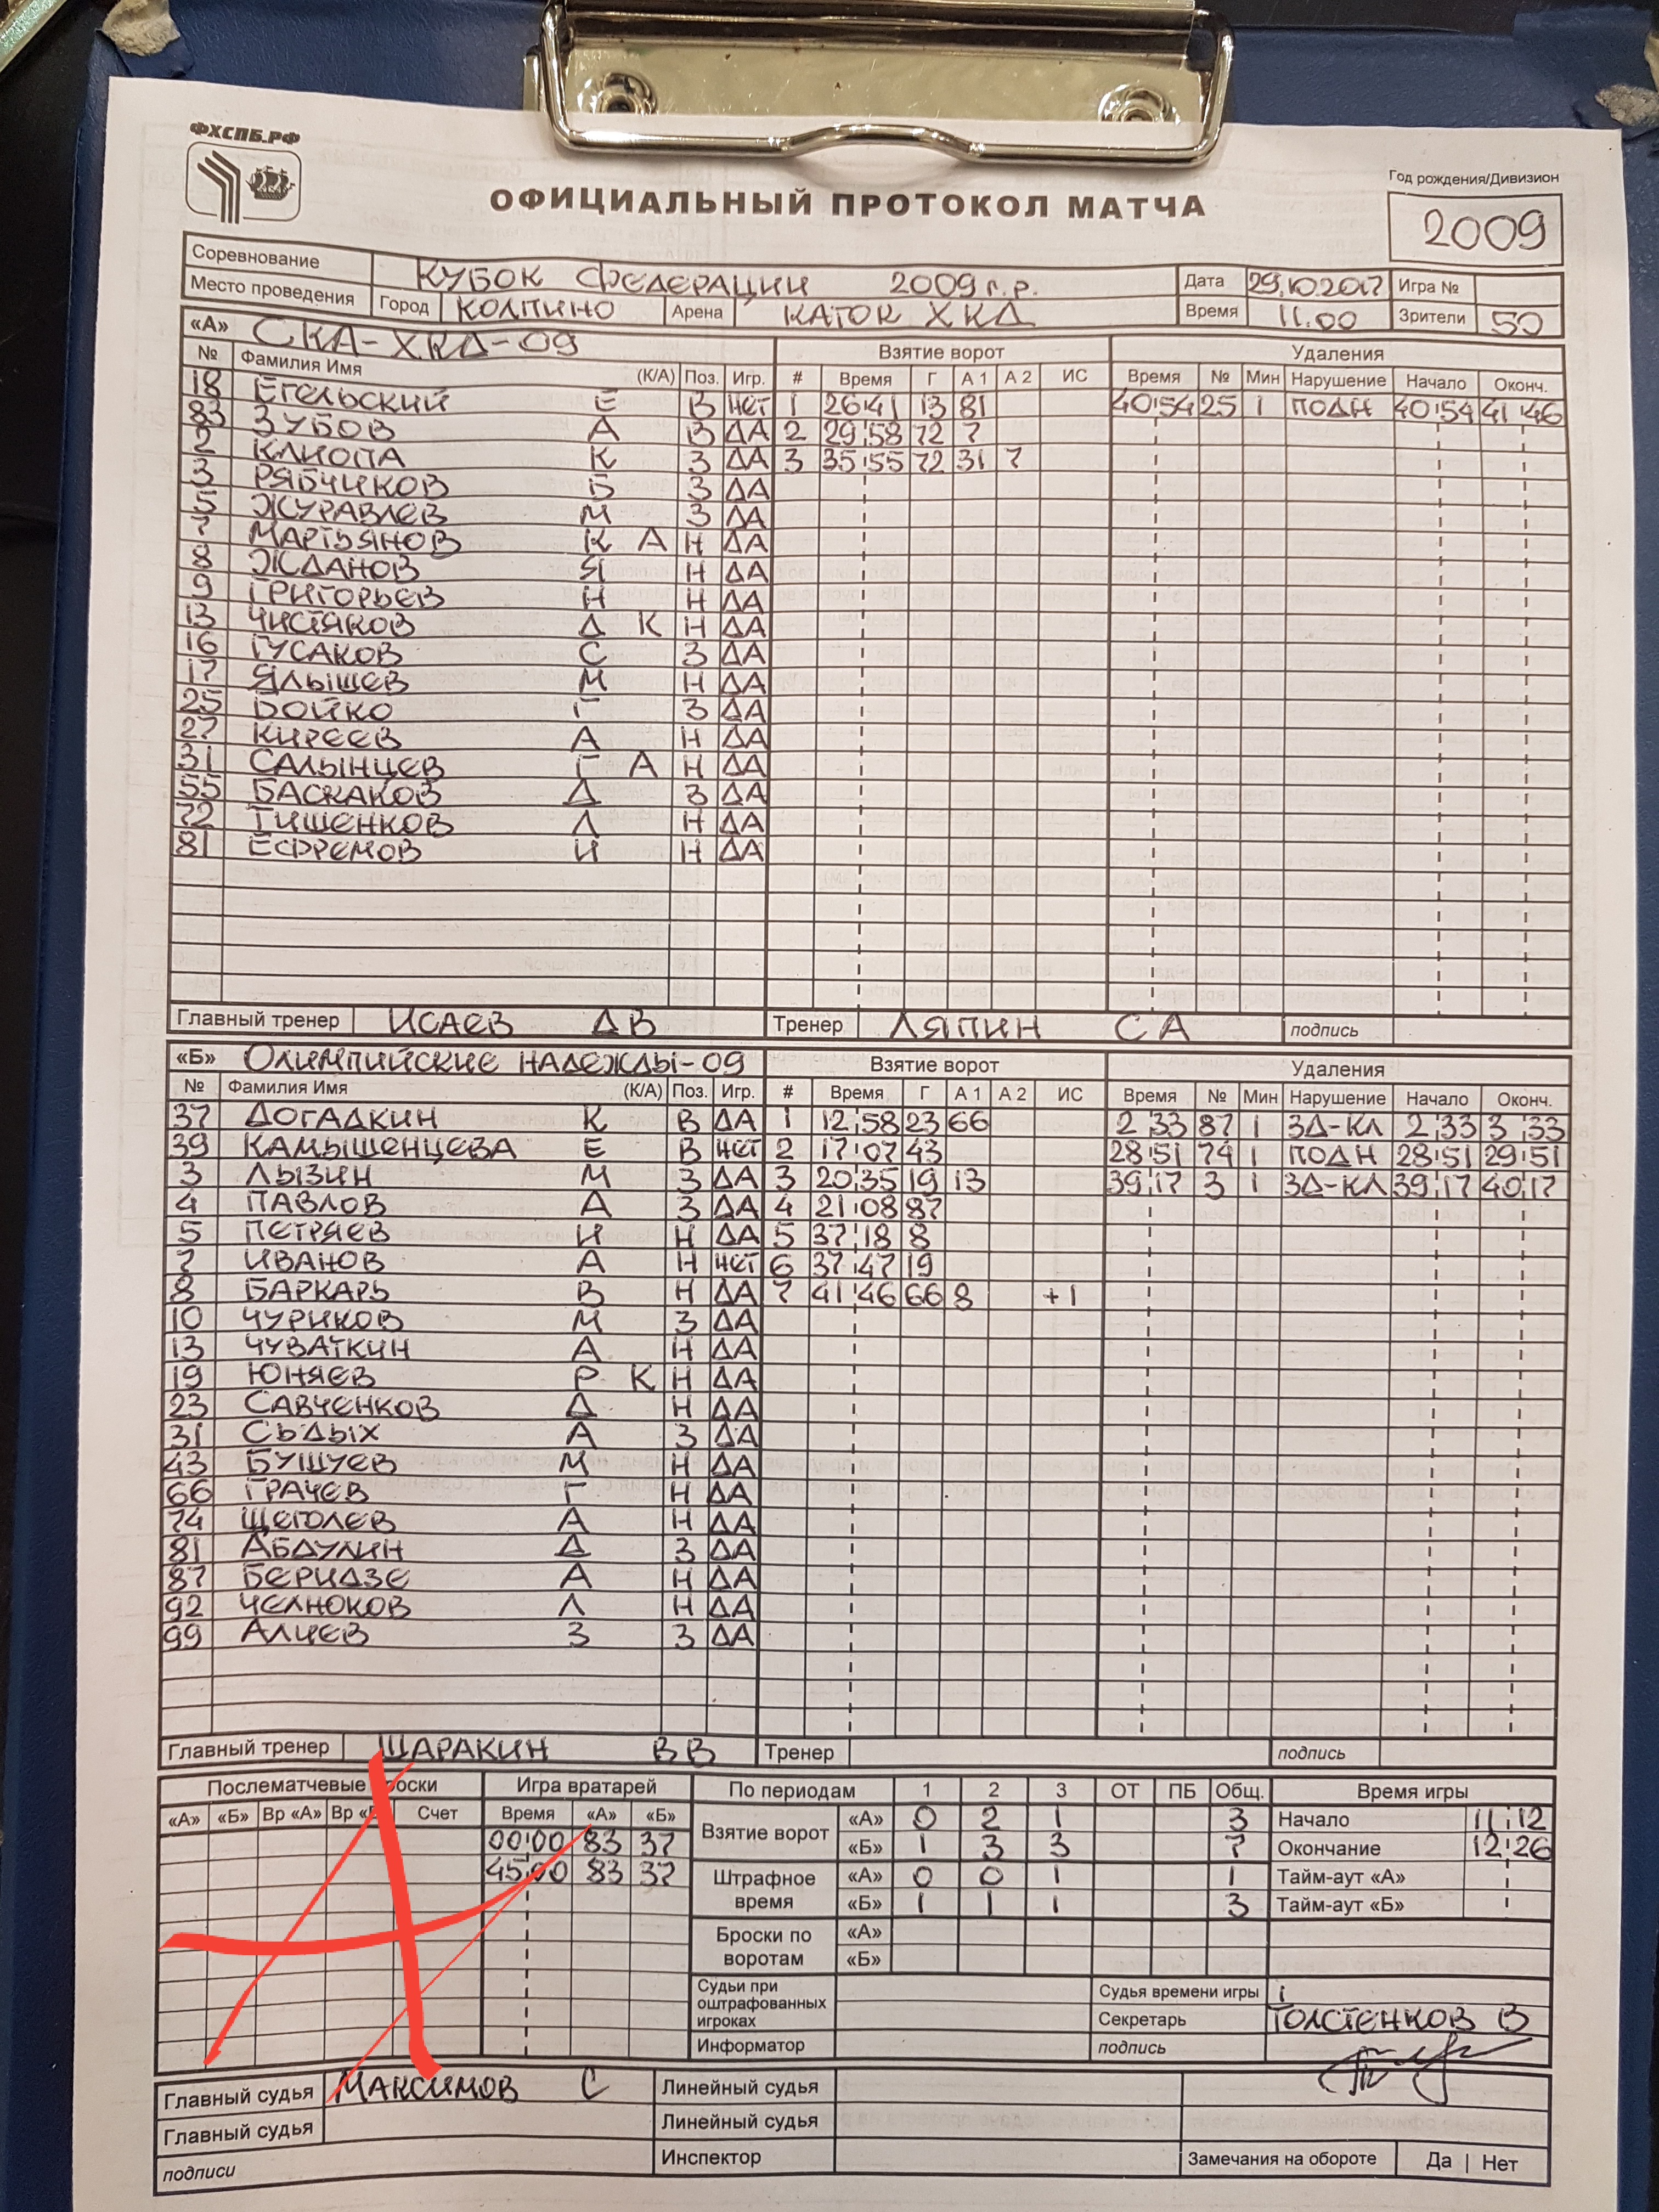 ФХСПБ.РФ
ОФИЦИАЛЬНЫЙ ПРОТОКОЛ МАТЧА
Год рождения/Дивизион
2009
Соревнование КУБОК ФЕДЕРАЦИИ 2009 г.р. Дата 29.10.2017 Игра №
Место проведения Город КОЛПИНО Арена КАТОК ХКД Время 11.00 Зрители 50
«А» СКА-ХКД-09 Взятие ворот Удаления
№ Фамилия Имя (К/А) Поз. Игр. # Время Г А 1 А 2 ИС Время № Мин Нарушение Начало Оконч.
18 ЕГЕЛЬСКИЙ Е В НЕТ 1 26:41 13 81 40:54 25 1 ПОДН 40:54 41:46
83 ЗУБОВ А В ДА 2 29:58 72 7
2 КЛИОПА К З ДА 3 35:55 72 31 7
3 РЯБЧИКОВ Б З ДА
5 ЖУРАВЛЕВ М З ДА
7 МАРТЬЯНОВ К А Н ДА
8 ЖДАНОВ Я Н ДА
9 ГРИГОРЬЕВ Н Н ДА
13 ЧИСТЯКОВ Д К Н ДА
16 ГУСАКОВ С З ДА
17 ЯЛЫШЕВ М Н ДА
25 БОЙКО Г З ДА
27 КИРЕЕВ А Н ДА
31 САЛЫНЦЕВ Г А Н ДА
55 БАСКАКОВ Д З ДА
72 ТИШЕНКОВ Л Н ДА
81 ЕФРЕМОВ И Н ДА
Главный тренер ИСАЕВ ДВ Тренер ЛЯПИН СА подпись
«Б» ОЛИМПИЙСКИЕ НАДЕЖДЫ-09 Взятие ворот Удаления
№ Фамилия Имя (К/А) Поз. Игр. # Время Г А 1 А 2 ИС Время № Мин Нарушение Начало Оконч.
37 ДОГАДКИН К В ДА 1 12:58 23 66 2:33 87 1 ЗД-КЛ 2:33 3:33
39 КАМЫШЕНЦЕВА Е В НЕТ 2 17:07 43 28:51 74 1 ПОДН 28:51 29:51
3 ЛЫЗИН М З ДА 3 20:35 19 13 39:17 3 1 ЗД-КЛ 39:17 40:17
4 ПАВЛОВ А З ДА 4 21:08 87
5 ПЕТРЯЕВ И Н ДА 5 37:18 8
7 ИВАНОВ А Н НЕТ 6 37:47 19
8 БАРКАРЬ В Н ДА 7 41:46 66 8 +1
10 ЧУРИКОВ М З ДА
13 ЧУВАТКИН А Н ДА
19 ЮНЯЕВ Р К Н ДА
23 САВЧЕНКОВ Д Н ДА
31 СЪДЫХ А З ДА
43 БУШУЕВ М Н ДА
66 ГРАЧЕВ Г Н ДА
74 ЩЕГОЛЕВ А Н ДА
81 АБДУЛИН Д З ДА
87 БЕРИДЗЕ А Н ДА
92 ЧЕЛНОКОВ Л Н ДА
99 АЛИЕВ З З ДА
Главный тренер ШАРАКИН ВВ Тренер подпись
Послематчевые броски Игра вратарей По периодам 1 2 3 ОТ ПБ Общ. Время игры
«А» «Б» Вр «А» Вр Счет Время «А» «Б» Взятие ворот «А» 0 2 1 3 Начало 11:12
00:00 83 37 «Б» 1 3 3 7 Окончание 12:26
45:00 83 37 Штрафное время «А» 0 0 1 1 Тайм-аут «А»
«Б» 1 1 1 3 Тайм-аут «Б»
Броски по воротам «А»
«Б»
Судьи при оштрафованных игроках Судья времени игры
Секретарь ТОЛСТЕНКОВ В
Информатор подпись
А
Главный судья МАКСИМОВ С Линейный судья
Главный судья Линейный судья
подписи Инспектор Замечания на обороте Да | Нет